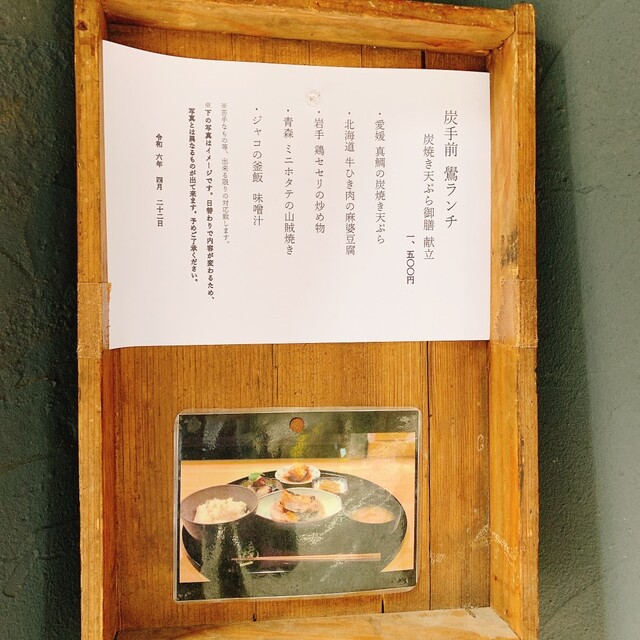 炭手前 鷽ランチ
炭焼き天ぷら御膳 献立
一、五〇〇円
・愛媛 真鯛の炭焼き天ぷら
・北海道 牛ひき肉の麻婆豆腐
・岩手 鶏セセリの炒め物
・青森 ミニホタテの山賊焼き
・ジャコの釜飯 味噌汁
※苦手なもの等、出来る限り対応致します。
※下の写真はイメージです。日替わりで内容が変わるため、
写真とは異なるものが出て来ます。予めご了承ください。
令和 六年 四月 二十二日